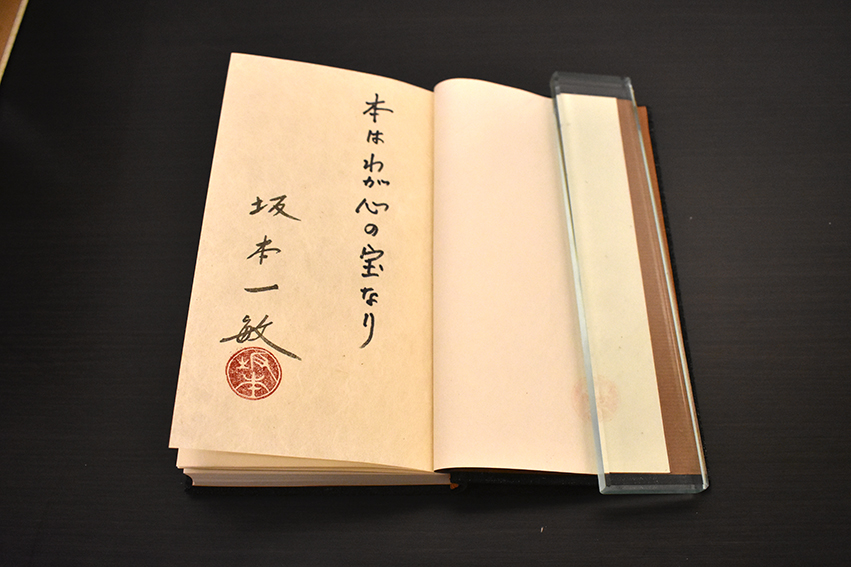 本はわが心の宝なり
坂本一敏
坂本